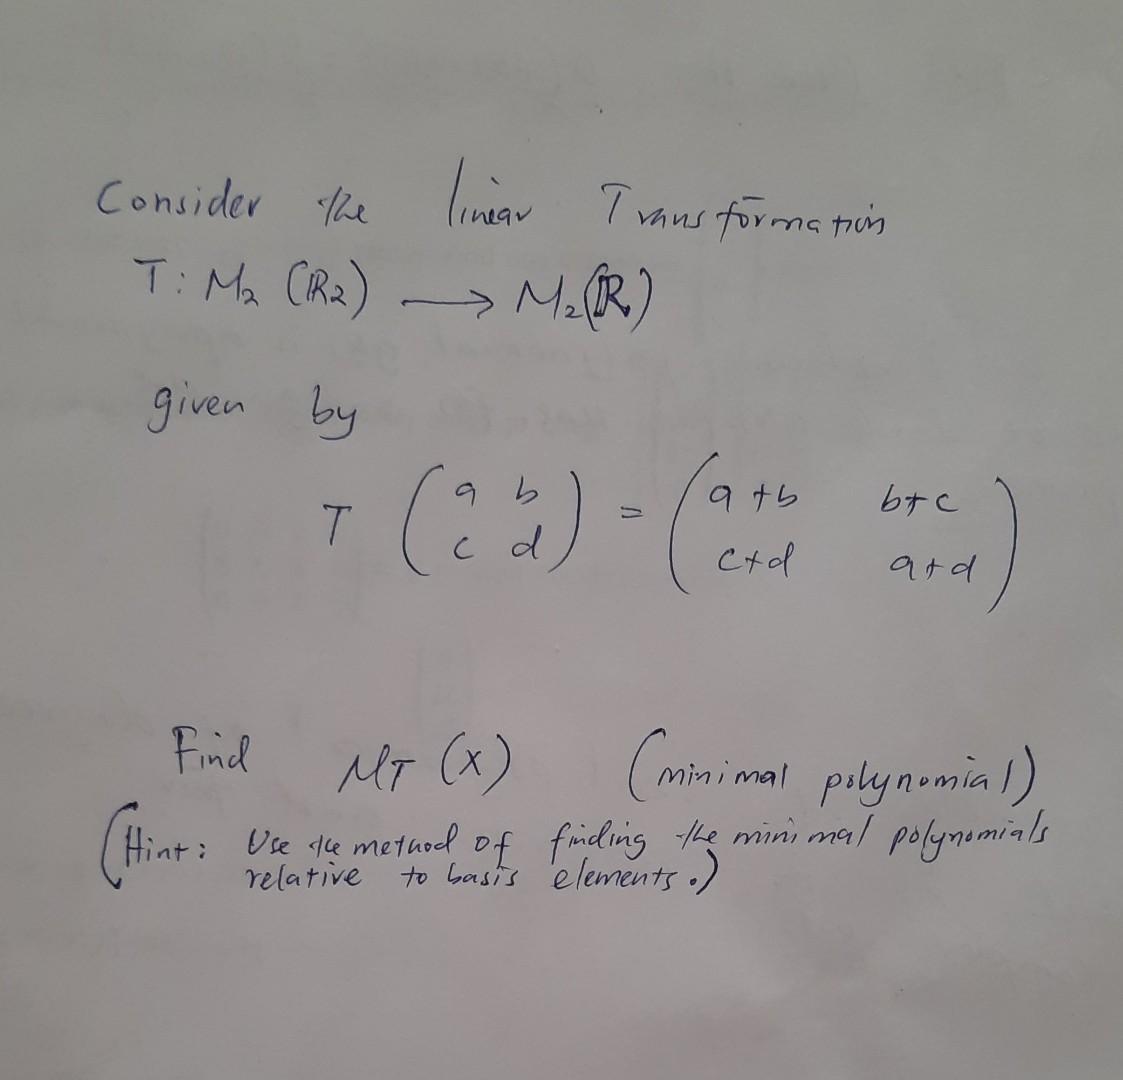 Consider the linear Transformation
T: M₂ (ℝ₂) ⟶ M₂(ℝ)
given by
T ( a b
c d ) = ( a+b b+c
c+d a+d )
Find MT (X) (minimal polynomial)
(Hint: Use the method of finding the minimal polynomials
relative to basis elements.)